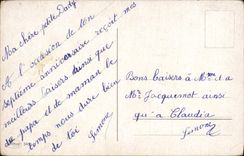 Ma chère petite Dady
A l'occasion de ton
septième anniversaire reçoit mes
meilleurs baisers ainsi que
du papa et de maman le
temps nous dure bien
de toi
Simone
Bons baisers à Mme et a
Mr Jacquemot ainsi
qu'a Claudia
Simone